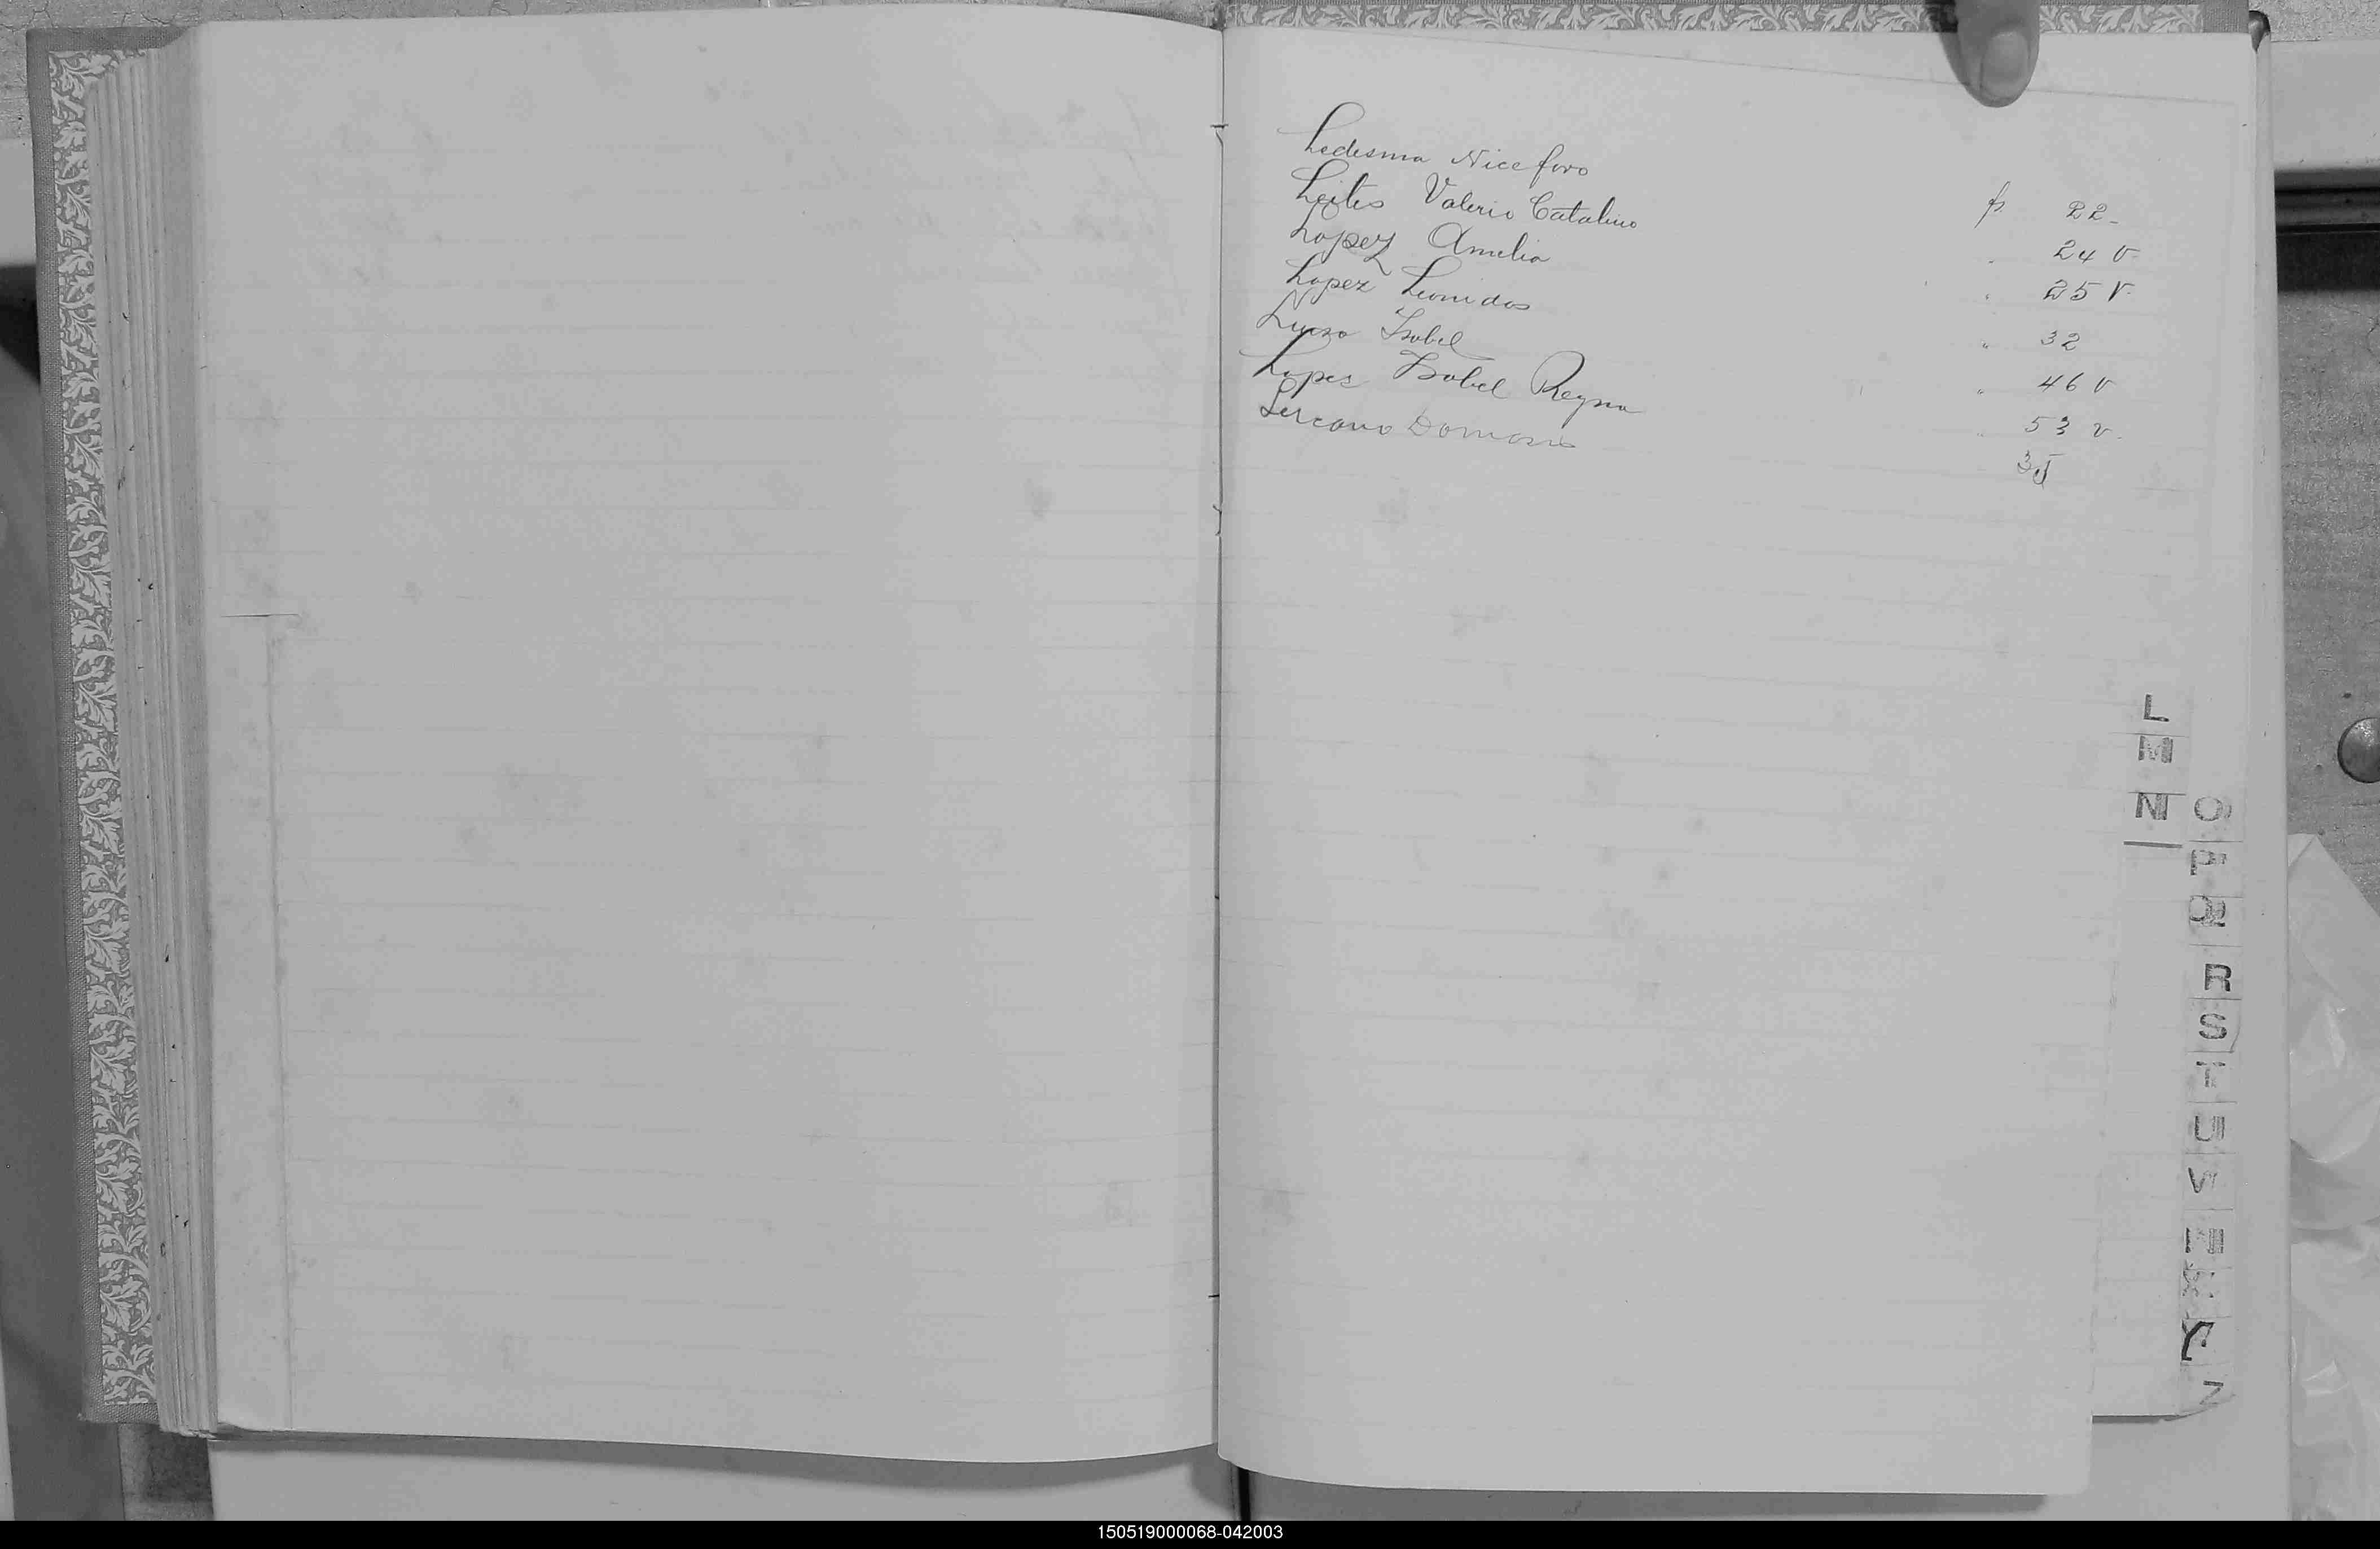 Ledesma Niceforo f. 22-
Leites Valerio Catalino " 24 v.
Lopez Amelia " 25 v.
Lopez Leonidas " 32
Isabel " 46 v
Lopes Isabel Reyna " 53 v.
Lercano 35
L
M
N
O
P
Q
R
S
T
U
V
Y
Z
150519000068-042003